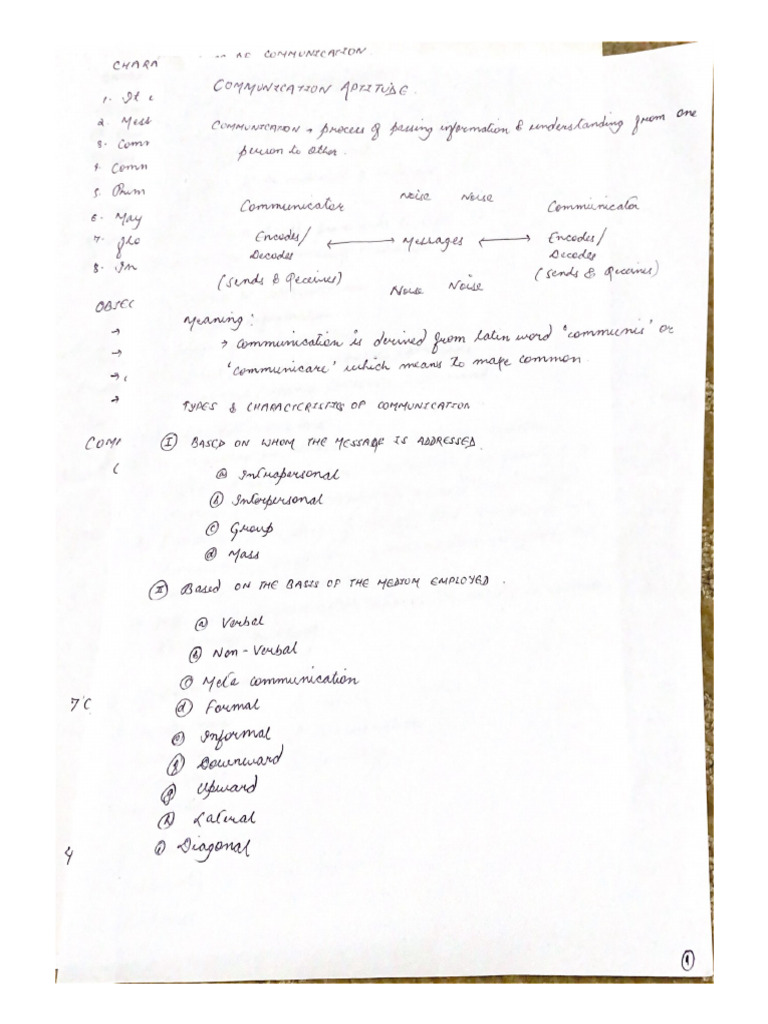 CHARA COMMUNICATION
1. It
2. Mess
3. Com
4. Comn
5. Prim
6. May
7. glo
8. In
OBJEC
→
→
→
→
COMP
(
7 C
4
COMMUNICATION APTITUDE.
COMMUNICATION → process of passing information & understanding from one
person to other.
Noise Noise
Communicator Communicator
Encodes/ ⟷ Messages ⟷ Encodes/
Decodes Decodes
(Sends & Receives) (Sends & Receives)
Noise Noise
Meaning:
→ communication is derived from Latin word 'communis' or
'communicare' which means to make common.
TYPES & CHARACTERISTICS OF COMMUNICATION
(I) BASED ON WHOM THE MESSAGE IS ADDRESSED.
(a) Intrapersonal
(b) Interpersonal
(c) Group
(d) Mass
(II) Based ON THE BASIS OF THE MEDIUM EMPLOYED.
(a) Verbal
(b) Non-Verbal
(c) Meta communication
(d) Formal
(e) Informal
(f) Downward
(g) Upward
(h) Lateral
(i) Diagonal
(1)